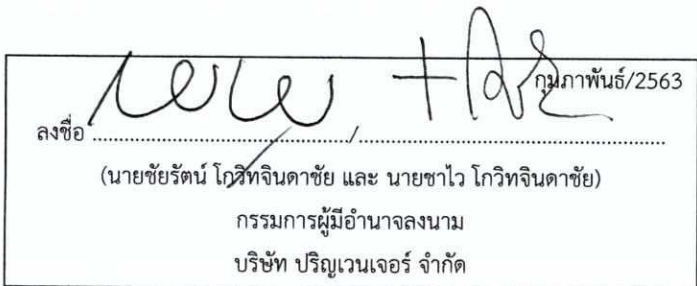 กุมภาพันธ์/2563
ลงชื่อ ......................................./.......................................
(นายชัยรัตน์ โกวิทจินดาชัย และ นายชาไว โกวิทจินดาชัย)
กรรมการผู้มีอำนาจลงนาม
บริษัท ปริญเวนเจอร์ จำกัด